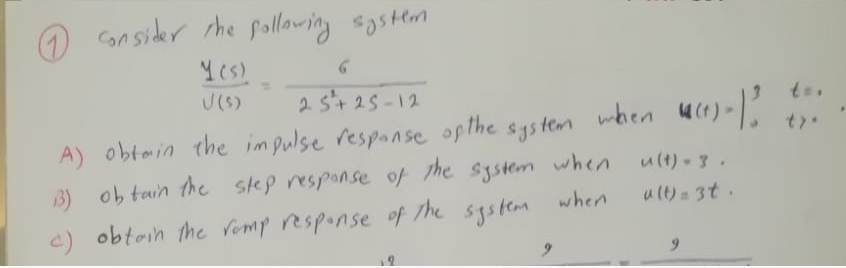 1 Consider the following system
Y(s) / U(s) = 6 / 2s²+2s-12
A) obtain the impulse response of the system when u(t) = | 3 t=0 0 t>0 .
B) obtain the step response of the system when u(t)=3.
c) obtain the ramp response of the system when u(t)=3t.
9 = 9